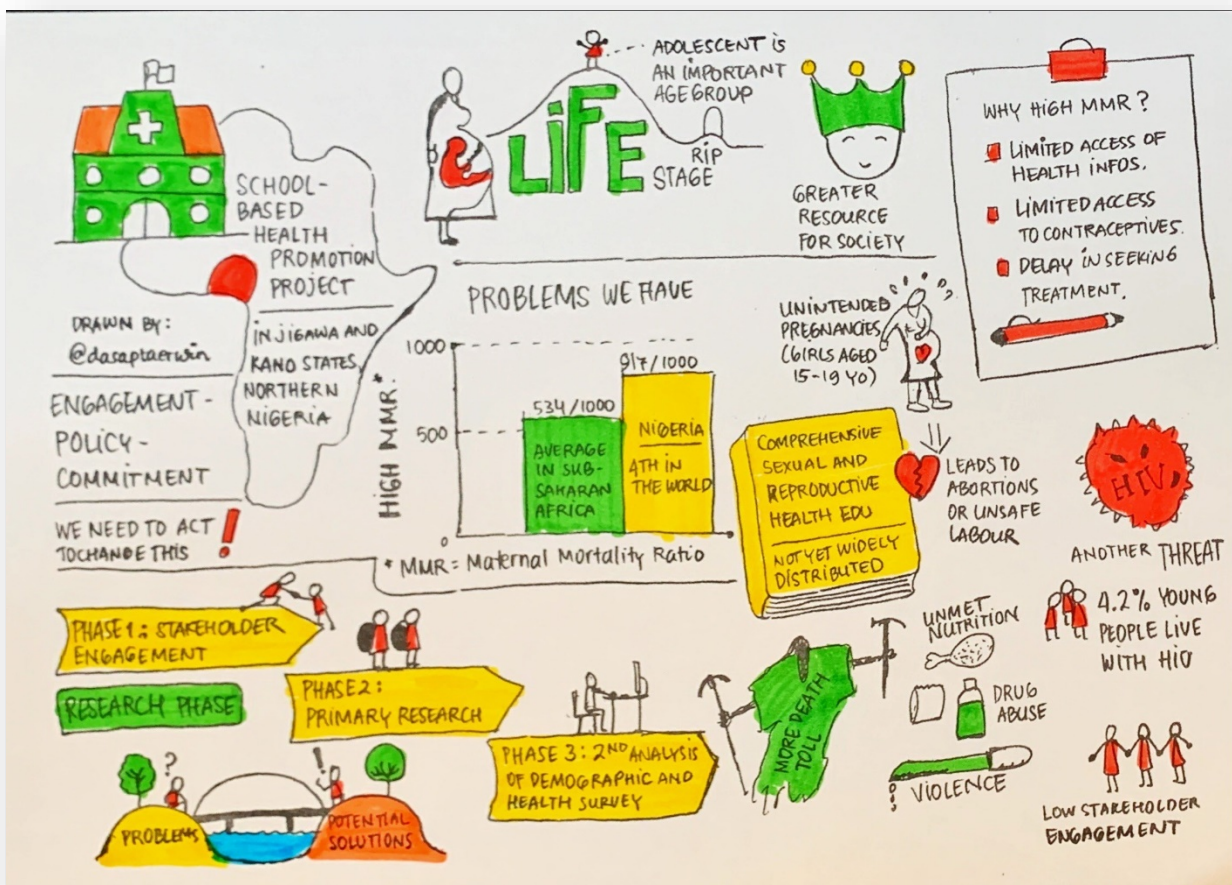 SCHOOL-
BASED
HEALTH
PROMOTION
PROJECT
IN JIGAWA AND
KANO STATES,
NORTHERN
NIGERIA
DRAWN BY:
@dasaptaerwin
ENGAGEMENT -
POLICY -
COMMITMENT
WE NEED TO ACT
TO CHANGE THIS !
LiFE
ADOLESCENT IS
AN IMPORTANT
AGE GROUP
RIP
STAGE
GREATER
RESOURCE
FOR SOCIETY
WHY HIGH MMR ?
LIMITED ACCESS OF
HEALTH INFOS.
LIMITED ACCESS
TO CONTRACEPTIVES.
DELAY IN SEEKING
TREATMENT.
PROBLEMS WE HAVE
HIGH MMR.*
1000
500
0
534/1000
917/1000
AVERAGE
IN SUB-
SAHARAN
AFRICA
NIGERIA
4TH IN
THE WORLD
* MMR = Maternal Mortality Ratio
UNINTENDED
PREGNANCIES
(GIRLS AGED
15-19 YO)
LEADS TO
ABORTIONS
OR UNSAFE
LABOUR
COMPREHENSIVE
SEXUAL AND
REPRODUCTIVE
HEALTH EDU
NOT YET WIDELY
DISTRIBUTED
HIV
ANOTHER THREAT
4.2% YOUNG
PEOPLE LIVE
WITH HIV
PHASE 1: STAKEHOLDER
ENGAGEMENT
RESEARCH PHASE
PHASE 2:
PRIMARY RESEARCH
PHASE 3: 2ND ANALYSIS
OF DEMOGRAPHIC AND
HEALTH SURVEY
?
!
PROBLEMS
POTENTIAL
SOLUTIONS
MORE DEATH
TOLL
UNMET
NUTRITION
DRUG
ABUSE
VIOLENCE
LOW STAKEHOLDER
ENGAGEMENT